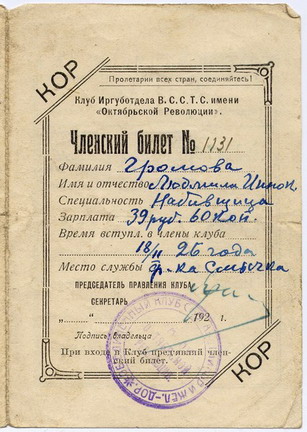 КОР
Пролетарии всех стран, соединяйтесь!
Клуб Иргуботдела В.С.С.Т.С. имени
«Октябрьской Революции».
Членский билет № 1131
Фамилия Громова
Имя и отчество Людмила
Специальность Набивщица
Зарплата 39 руб. 60 коп.
Время вступл. в члены клуба
18/II 26 года
Место службы ф-ка Смычка
ПРЕДСЕДАТЕЛЬ ПРАВЛЕНИЯ КЛУБА
СЕКРЕТАРЬ
„ “ 192 г.
Подпись владельца
При входе в Клуб предъявляй член-
ский билет.
КОР